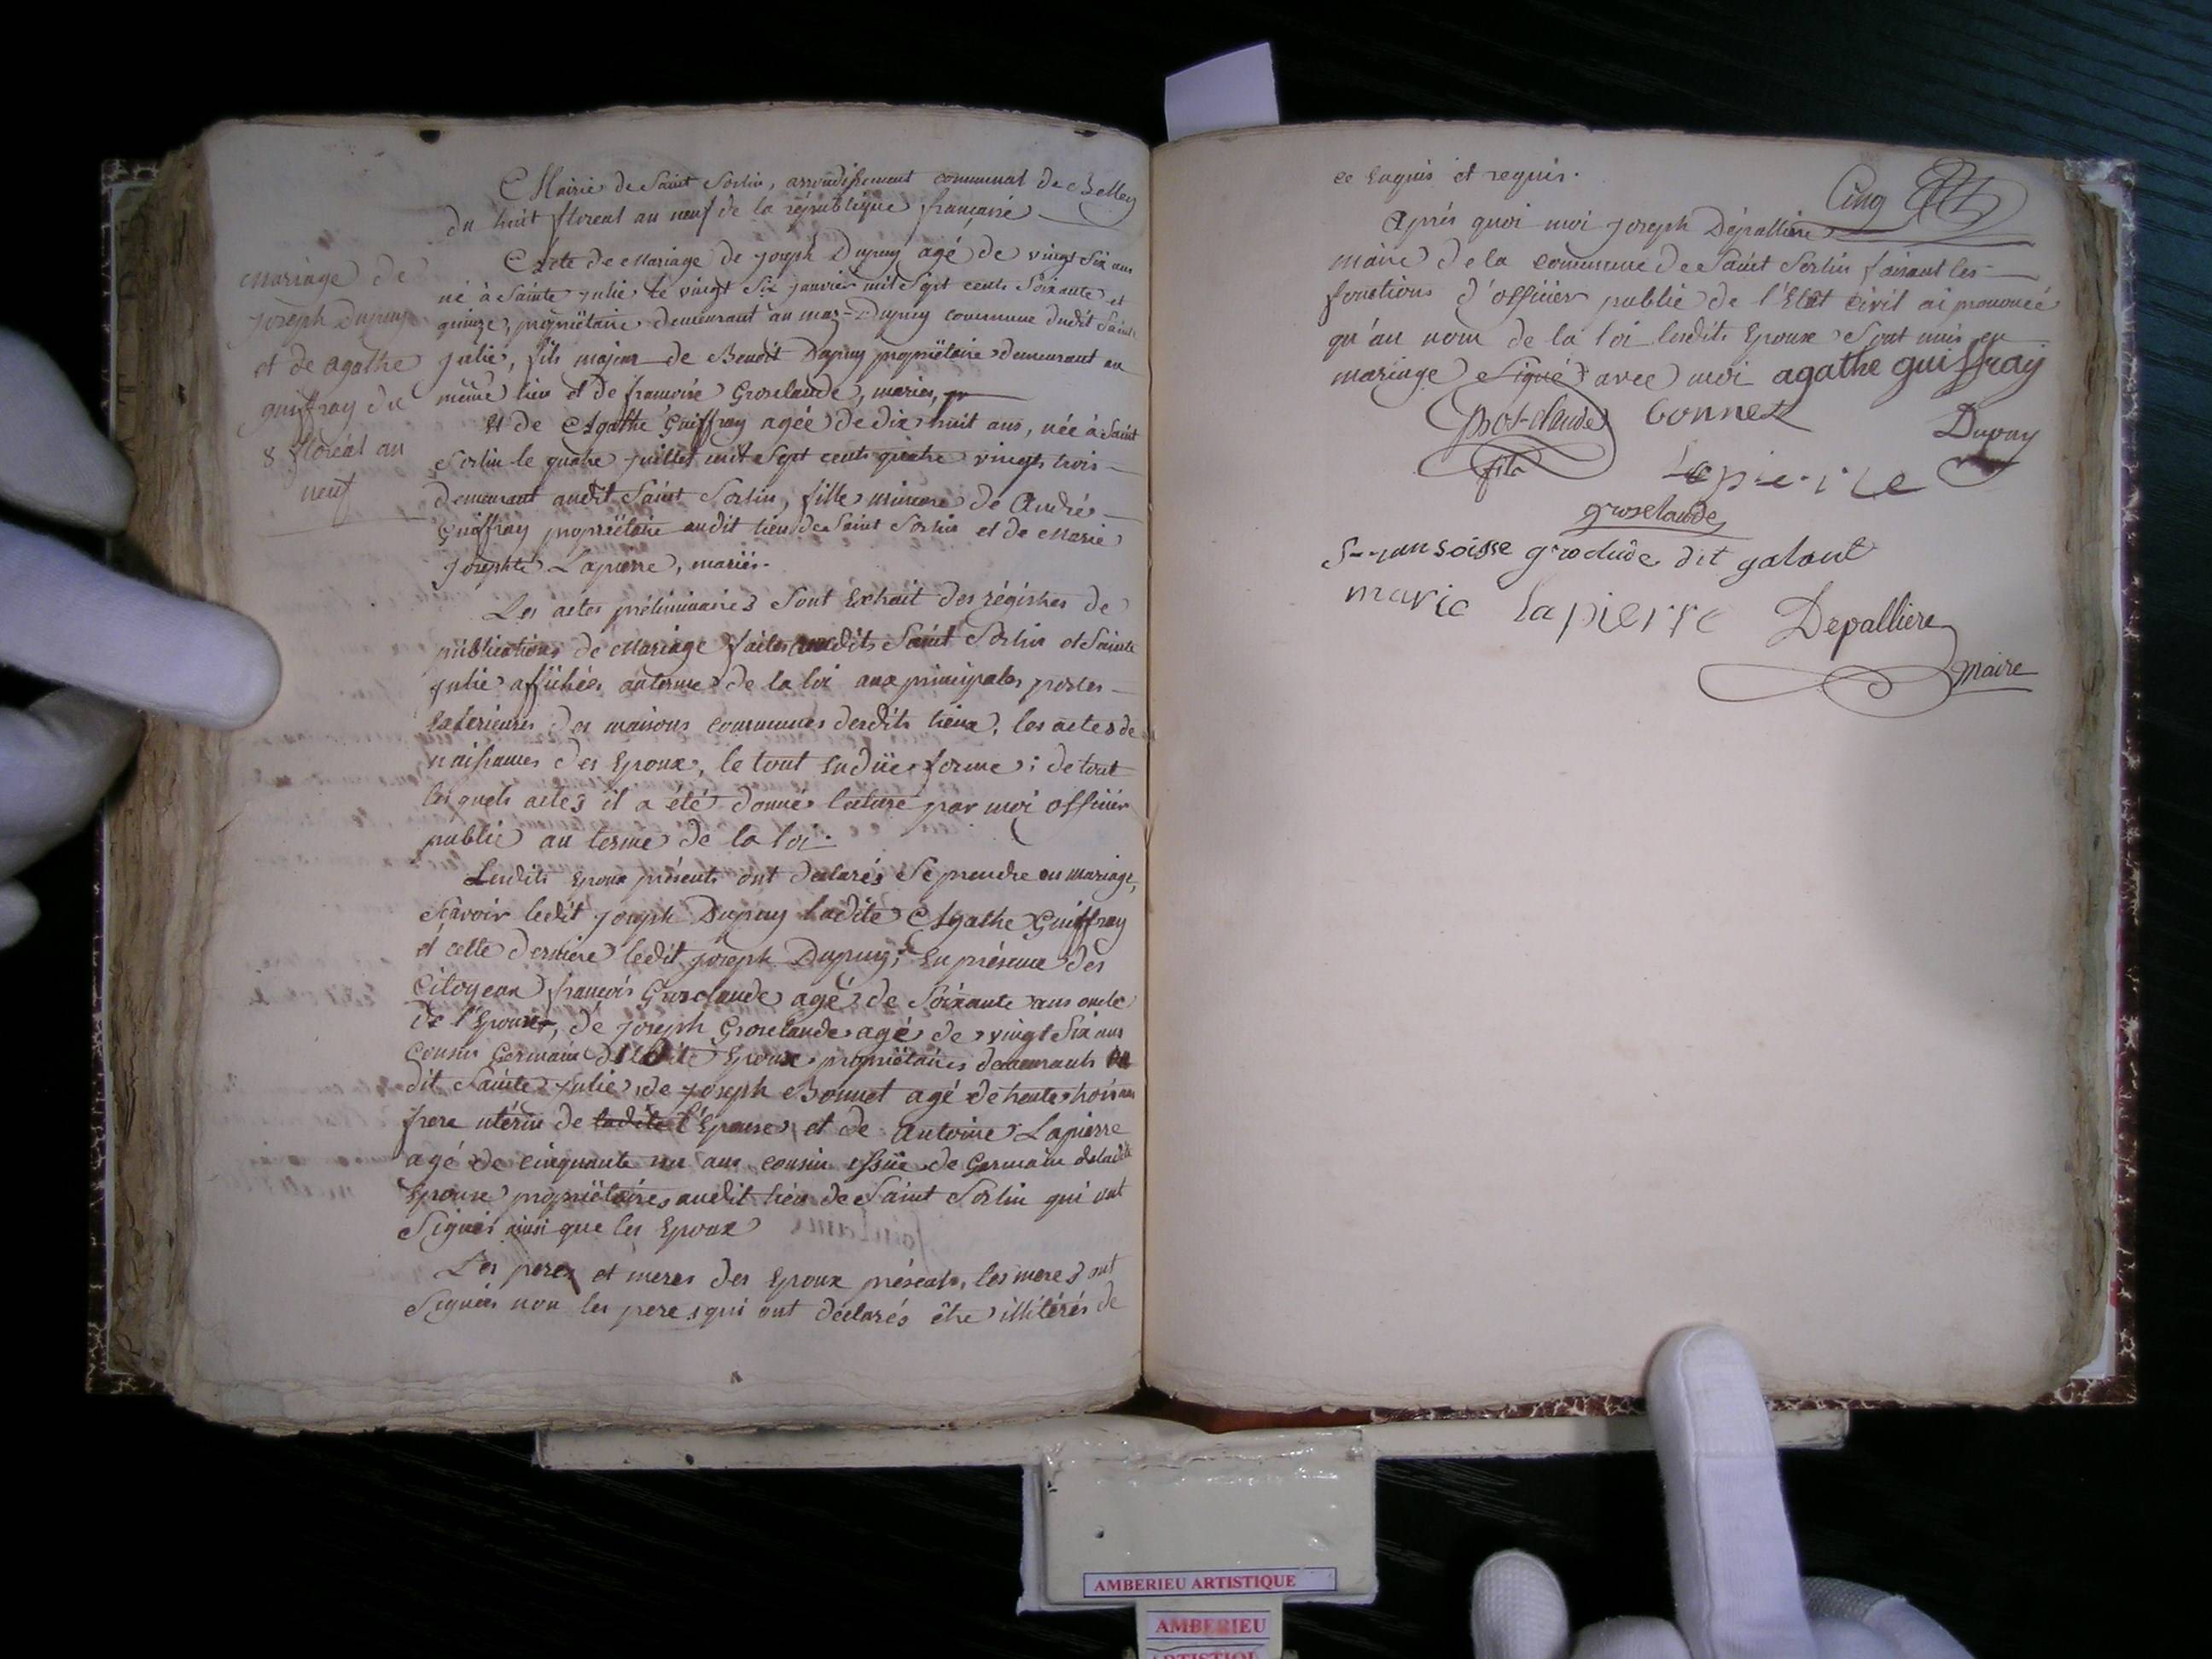 Mairie de Saint Sorlin, arrondissement communal de Belley
du huit floreal an neuf de la république française
Mariage de
joseph Dupuy
et de agathe
guiffray du
8 floréal an
neuf
Acte de Mariage de joseph Dupuy agé de vingt six ans
né à Sainte julie le vingt six janvier mil sept cents soixante et
quinze, propriëtaire demeurant au mas-Dupuy commune dudit Sainte
julie, fils majeur de Benoit Dupuy propriëtaire demeurant au
même lieu et de françoise Groselaude, mariés,
Et de Agathe Guiffray agée de dix huit ans, née à Saint
Sorlin le quatre juillet mil sept cents quatre vingts trois
demeurant audit Saint Sorlin, fille mineure de André
Guiffray propriëtaire audit lieu de Saint Sorlin et de Marie
josephte Lapierre, mariés.
Les actes préliminaires sont Extrait des régistres de
publications de Mariage faites audits Saint Sorlin et Sainte
julie affichées au terme de la loi aux principales portes
Exterieures des maisons communes desdits lieux, les actes de
naissances des Epoux, le tout en düe forme; de tout
lesquels actes il a été donné lecture par moi officier
public au terme de la loi.
Lesdits Epoux présents ont déclarés se prendre en mariage,
sçavoir ledit joseph Dupuy ladite Agathe Guiffray
et cette derniere ledit joseph Dupuy; En présence des
Citoyens françois Groselaude agé de soixante ans oncle
de l'Epoux, de joseph Groselaude agé de vingt six ans
cousin Germain Epoux propriëtaires demeurants
dit Sainte julie, de joseph Bonnet agé de trente trois ans
frere utérin de ladite l'Epouse, et de Antoine Lapierre
agé de cinquante un ans, cousin issüe de Germain de ladite
Epouse propriëtaires audit lieu de Saint Sorlin qui ont
signés ainsi que les Epoux
Les peres et meres des Epoux présents, les meres ont
signées non les peres qui ont déclarés être illitérés de
ce Enquis et requis.
Cinq
Après quoi moi joseph Dépalliere
maire de la commune de Saint Sorlin faisant les
fonctions d'officier public de l'Etat civil ai prononcé
qu'au nom de la loi lesdits Epoux sont unis en
mariage Signé avec moi agathe guiffray
fils
bonnet
Dupuy
Lapierre
groselaude
dit galant
marie lapierre
Depalliere
maire
AMBERIEU ARTISTIQUE
AMBERIEU
ARTISTIQUE